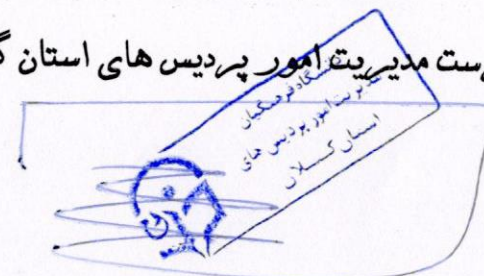 مدیریت امور پردیس های استان
دانشگاه فرهنگیان
مدیریت امور پردیس های
استان گیلان